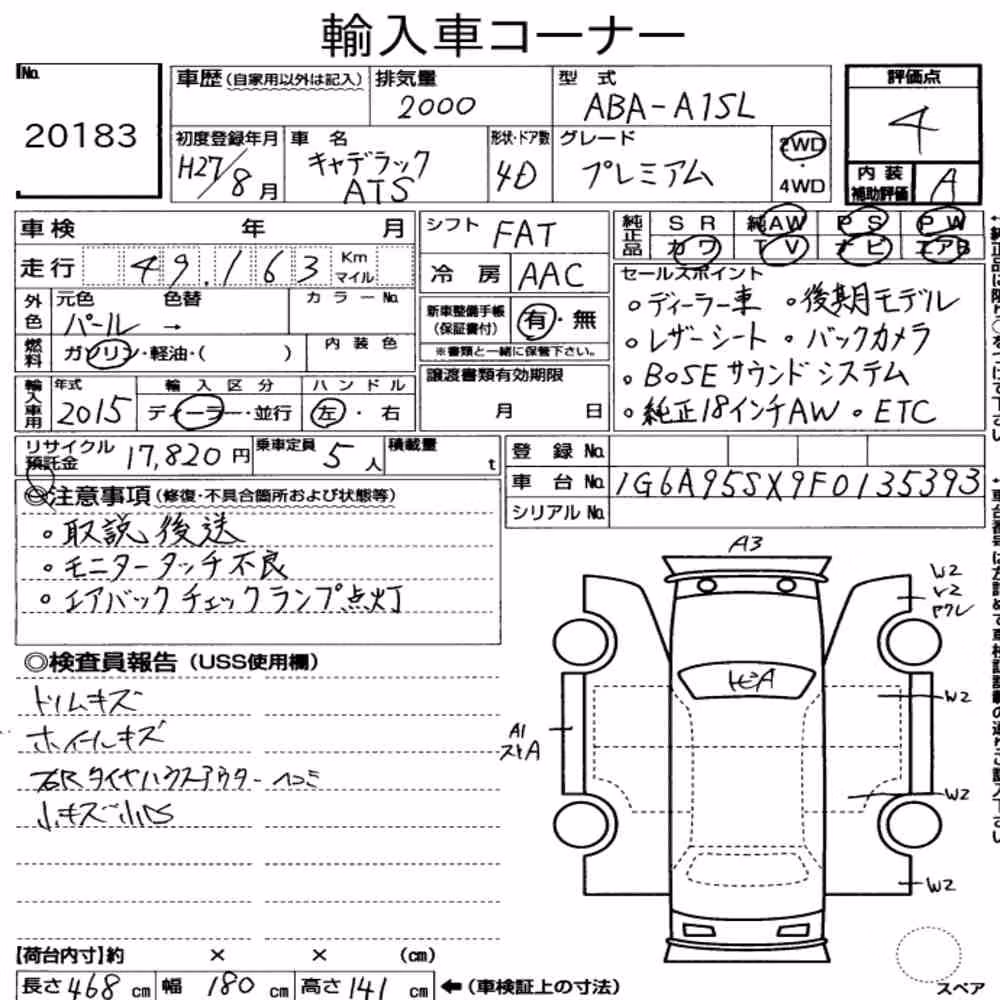 輸入車コーナー
No. 20183
車歴(自家用以外は記入) 排気量 2000 型式 ABA-A1SL 評価点 4
初度登録年月 H27/8月 車名 キャデラック ATS 形状・ドア数 4D グレード プレミアム 2WD・4WD 内装補助評価 A
車検 年 月 シフト FAT 純正品 SR 純AW PS PW
カワ TV ナビ エアB
走行 49,163 Km マイル 冷房 AAC
外色 元色 パール → 色替 カラーNo.
燃料 ガソリン・軽油・( ) 内装色
新車整備手帳(保証書付) 有・無
※書類と一緒に保管下さい。
輸入車用 年式 2015 輸入区分 ディーラー・並行 ハンドル 左・右
譲渡書類有効期限 月 日
セールスポイント
。ディーラー車 。後期モデル
。レザーシート 。バックカメラ
。BOSEサウンドシステム
。純正18インチAW 。ETC
リサイクル預託金 17,820円 乗車定員 5人 積載量 t
登録No.
車台No. 1G6A95SX9F0135393
シリアルNo.
◎注意事項(修復・不具合箇所および状態等)
。取説後送
。モニタータッチ不良
。エアバックチェックランプ点灯
◎検査員報告(USS使用欄)
トリムキズ
ホイールキズ
右Rタイヤハウスアウターヘコミ
小キズ小凹
A3
W2
W2
A1
W2
W2
W2
スペア
【荷台内寸】約 × × (cm)
長さ468cm 幅180cm 高さ141cm ←(車検証上の寸法)